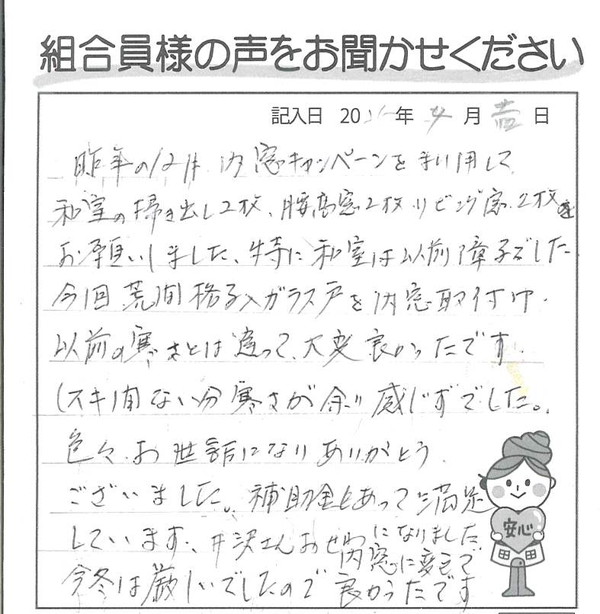 組合員様の声をお聞かせください
記入日 20 年 月 壱 日
昨年の12月 内窓キャンペーンを利用して
和室の掃き出し2枚、腰高窓2枚 リビング窓 2枚を
お願いしました、特に和室は以前障子でした
今回 荒間格子入ガラス戸を内窓取付け.
以前の寒さとは違って、大変良かったです.
(スキ間ない分寒さが余り感じずでした。
色々 お世話になりありがとう.
ございました。補助金もあって満足
しています、井沢さんお世話になりました
内窓に変えて
今冬は厳しいでしたので 良かったです
安心